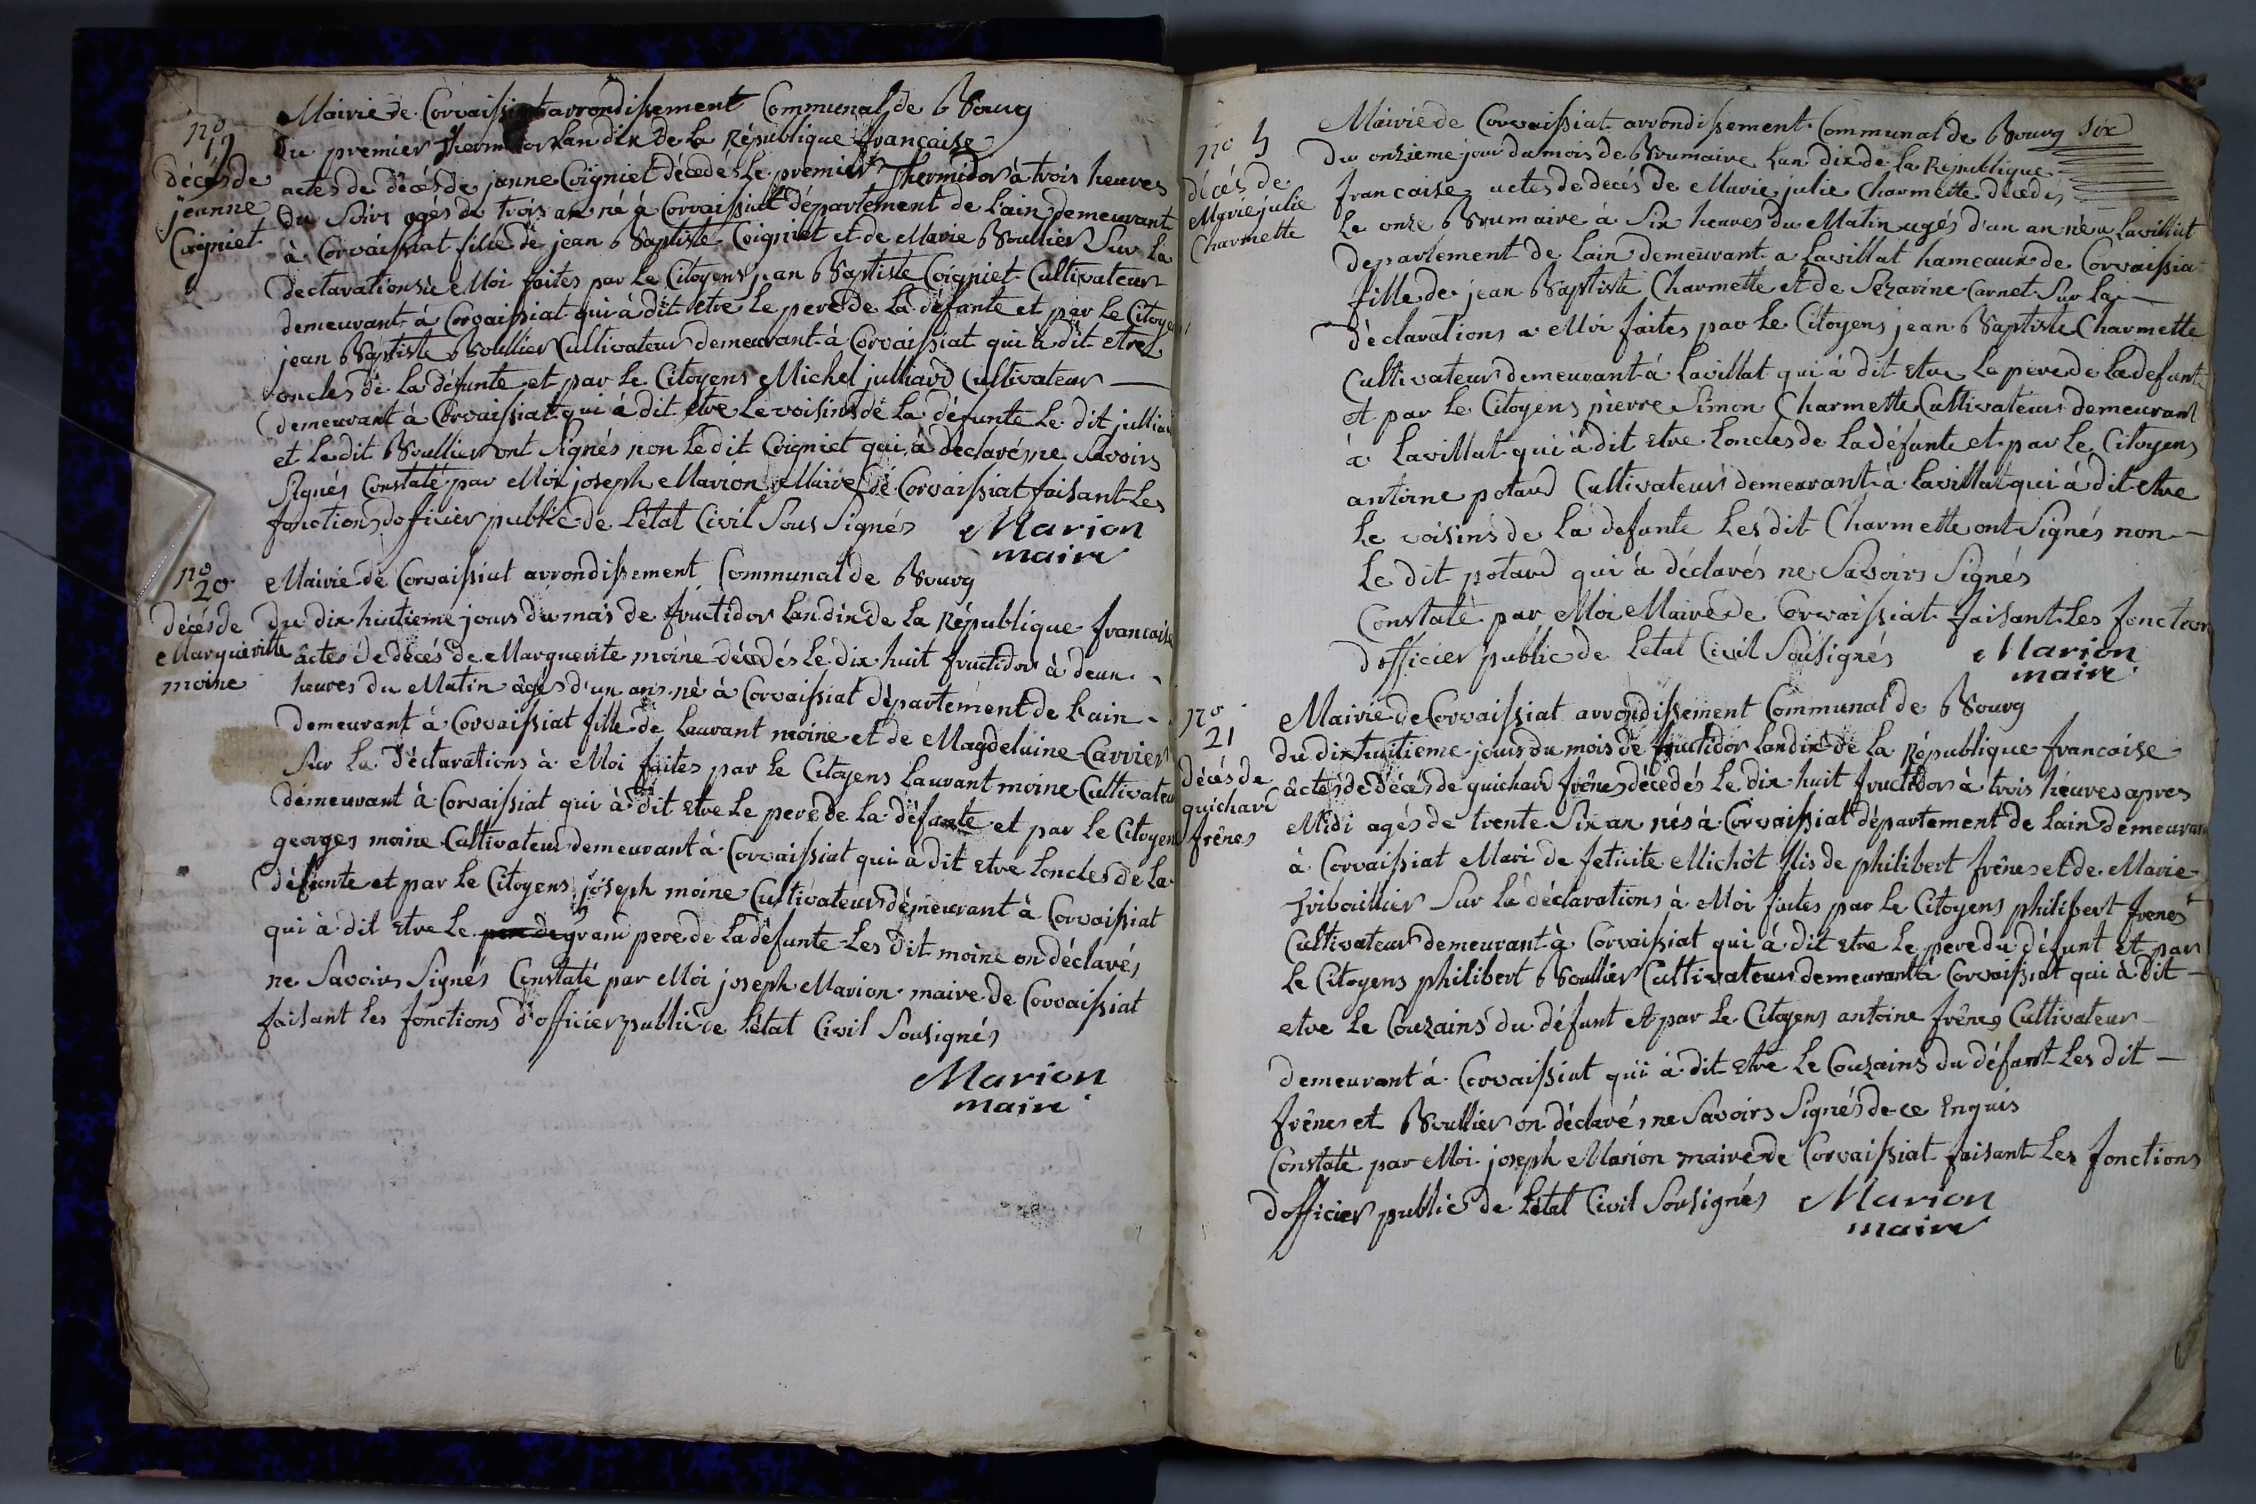 nº
19
décés de
jeanne
Coigniet
Mairie de Corvaissiat arrondissement Communal de Bourg
Du premier Thermidor Lan dix de La République française
actes de décés de jenne Coigniet décédés Le premier Thermidor à trois heures
Du Soirs agés de trois an né à Corvaissiat département de L'ain demeurant
à Corvaissiat fille de jean Baptiste Coigniet et de Marie Boullier Sur La
declarations à Moi faites par Le Citoyens jean Baptiste Coigniet Cultivateur
demeurant à Corvaissiat qui à dit etre Le pere de La défante et par Le Citoyen
jean Baptiste Boullier Cultivateur demeurant à Corvaissiat qui à dit etre L
oncles de La défunte et par Le Citoyens Michel julliard Cultivateur
demeurant à Corvaissiat qui à dit etre Le voisins de La défunte Le dit julliar
et Le dit Boullier ont Signés non Le dit Coigniet qui à déclaré ne Savoirs
Signés Constaté par Moi joseph Marion Maire de Corvaissiat faisant Les
fonctions doficier public de L'état Civil Sous Signés Marion
maire
nº
20
décés de
Margueritte
moine
Mairie de Corvaissiat arrondissement Communal de Bourg
du dix huitieme jours du mais de fructidor Lan dix de La République francaise
âctes de décés de Marguerite moine décédés Le dix huit fructidor à deux
heures du Matin âgés d'un ans né à Corvaissiat département de L'ain
demeurant à Corvaissiat fille de Laurant moine et de Magdelaine Carrier
Sur La déclarations à Moi faites par Le Citoyens Laurant moine Cultivateur
démeurant à Corvaissiat qui à dit Etre Le pere de La défante et par Le Citoyen
georges moine Cultivateur demeurant à Corvaissiat qui à dit Etre Loncles de La
défunte et par Le Citoyens joseph moine Cultivateurs démeurant à Corvaissiat
qui à dit Etre Le pere de grand pere de La défunte Les dit moine on déclarés
ne Savoirs Signés Constaté par Moi joseph Marion maire de Corvaissiat
faisant Les fonctions d'officier public de L'état Civil Sousignés
Marion
maire
nº 5
décés de
Marie julie
Charmette
Mairie de Corvaissiat arrondissement Communal de Bourg Six
du onzieme jour du mois de Brumaire Lan dix de La Republique
francaise actes de decés de Marie julie Charmette decedés
Le onze Brumaire à Six heures du Matin agés d'un an née a Lavillat
departement de Lain demeurant a Lavillat hameaux de Corvaissia
fille de jean Baptiste Charmette et de Sezarine Carnet Sur La
déclarations a Moi faites par Le Citoyens jean Baptiste Charmette
Cultivateur demeurant à Lavillat qui à dit Etre Le pere de La defunt
et par Le Citoyens pierre Simon Charmette Cultivateur demeurant
à Lavillat qui à dit Etre Loncles de La défunte et par Le Citoyens
antoine potard Cultivateur demeurant à Lavillat qui à dit etre
Le voisins de La defunte Les dit Charmette ont Signés non
Le dit potard qui à déclarés ne Savoirs Signés
Constaté par Moi Maire de Corvaissiat faisant Les fonction
dofficier public de Letat Civil Sousignés Marion
maire
nº
21
Décés de
guichard
frênes
Mairie de Corvaissiat arrondissement Communal de Bourg
du dix huitieme jours du mois de fructidor Lan dix de La République francaise
âctes de décés de guichard frênes décedés Le dix huit fructidor à trois héures apres
Midi agés de trente Six an nés à Corvaissiat département de Lain démeurant
à Corvaissiat Mari de felicite Michôt fils de philibert frênes et de Marie
Tribouillier Sur La déclarations à Moi faites par Le Citoyens philibert frenes
Cultivateur demeurant à Corvaissiat qui à dit Etre Le pere du défunt Et par
Le Citoyens philibert Boullier Cultivateur demeurant à Corvaissiat qui à dit
etre Le Couzains du défunt Et par Le Citoyens antoine frênes Cultivateur
Demeurant à Corvaissiat qui à dit Etre Le Couzains du défant Les dit
frênes et Boullier on déclaré, ne Savoirs Signés de ce Enquis
Constaté par Moi joseph Marion maire de Corvaissiat faisant Les fonctions
dofficier public de L'état Civil Sousignés Marion
maire